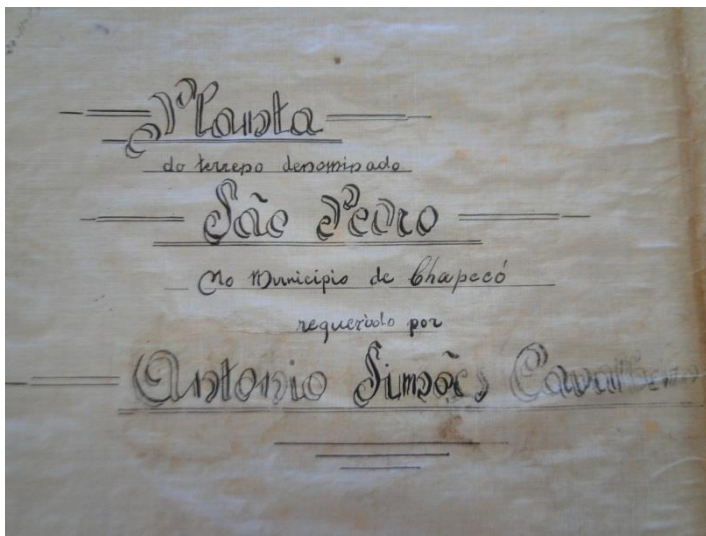 Planta
do terreno denominado
São Pedro
No Municipio de Chapecó
requerido por
Antonio Simões